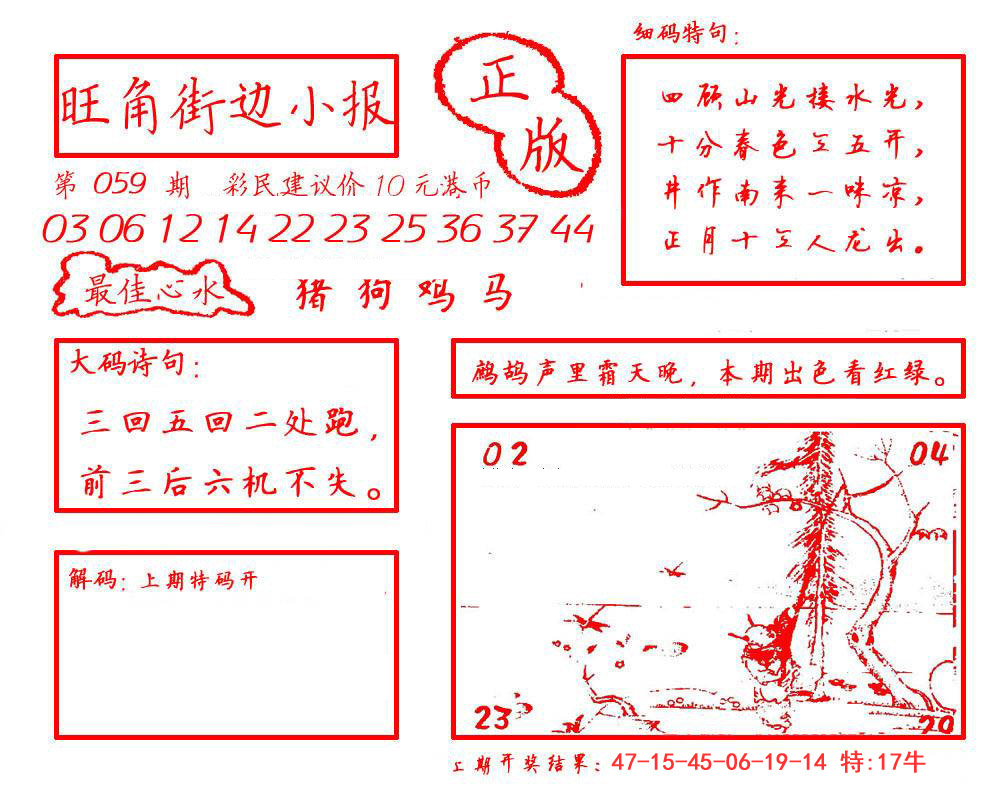 旺角街边小报
正版
第 059 期 彩民建议价 10 元港币
03 06 12 14 22 23 25 36 37 44
最佳心水 猪 狗 鸡 马
细码特句:
四顾山光楼水光,
十分春色三五开,
井作南来一味凉,
正月十三人龙出。
大码诗句:
三回五回二处跑,
前三后六机不失。
解码: 上期特码开
鹧鸪声里霜天晚, 本期出色看红绿。
02 04
23 20
上期开奖结果: 47-15-45-06-19-14 特:17牛